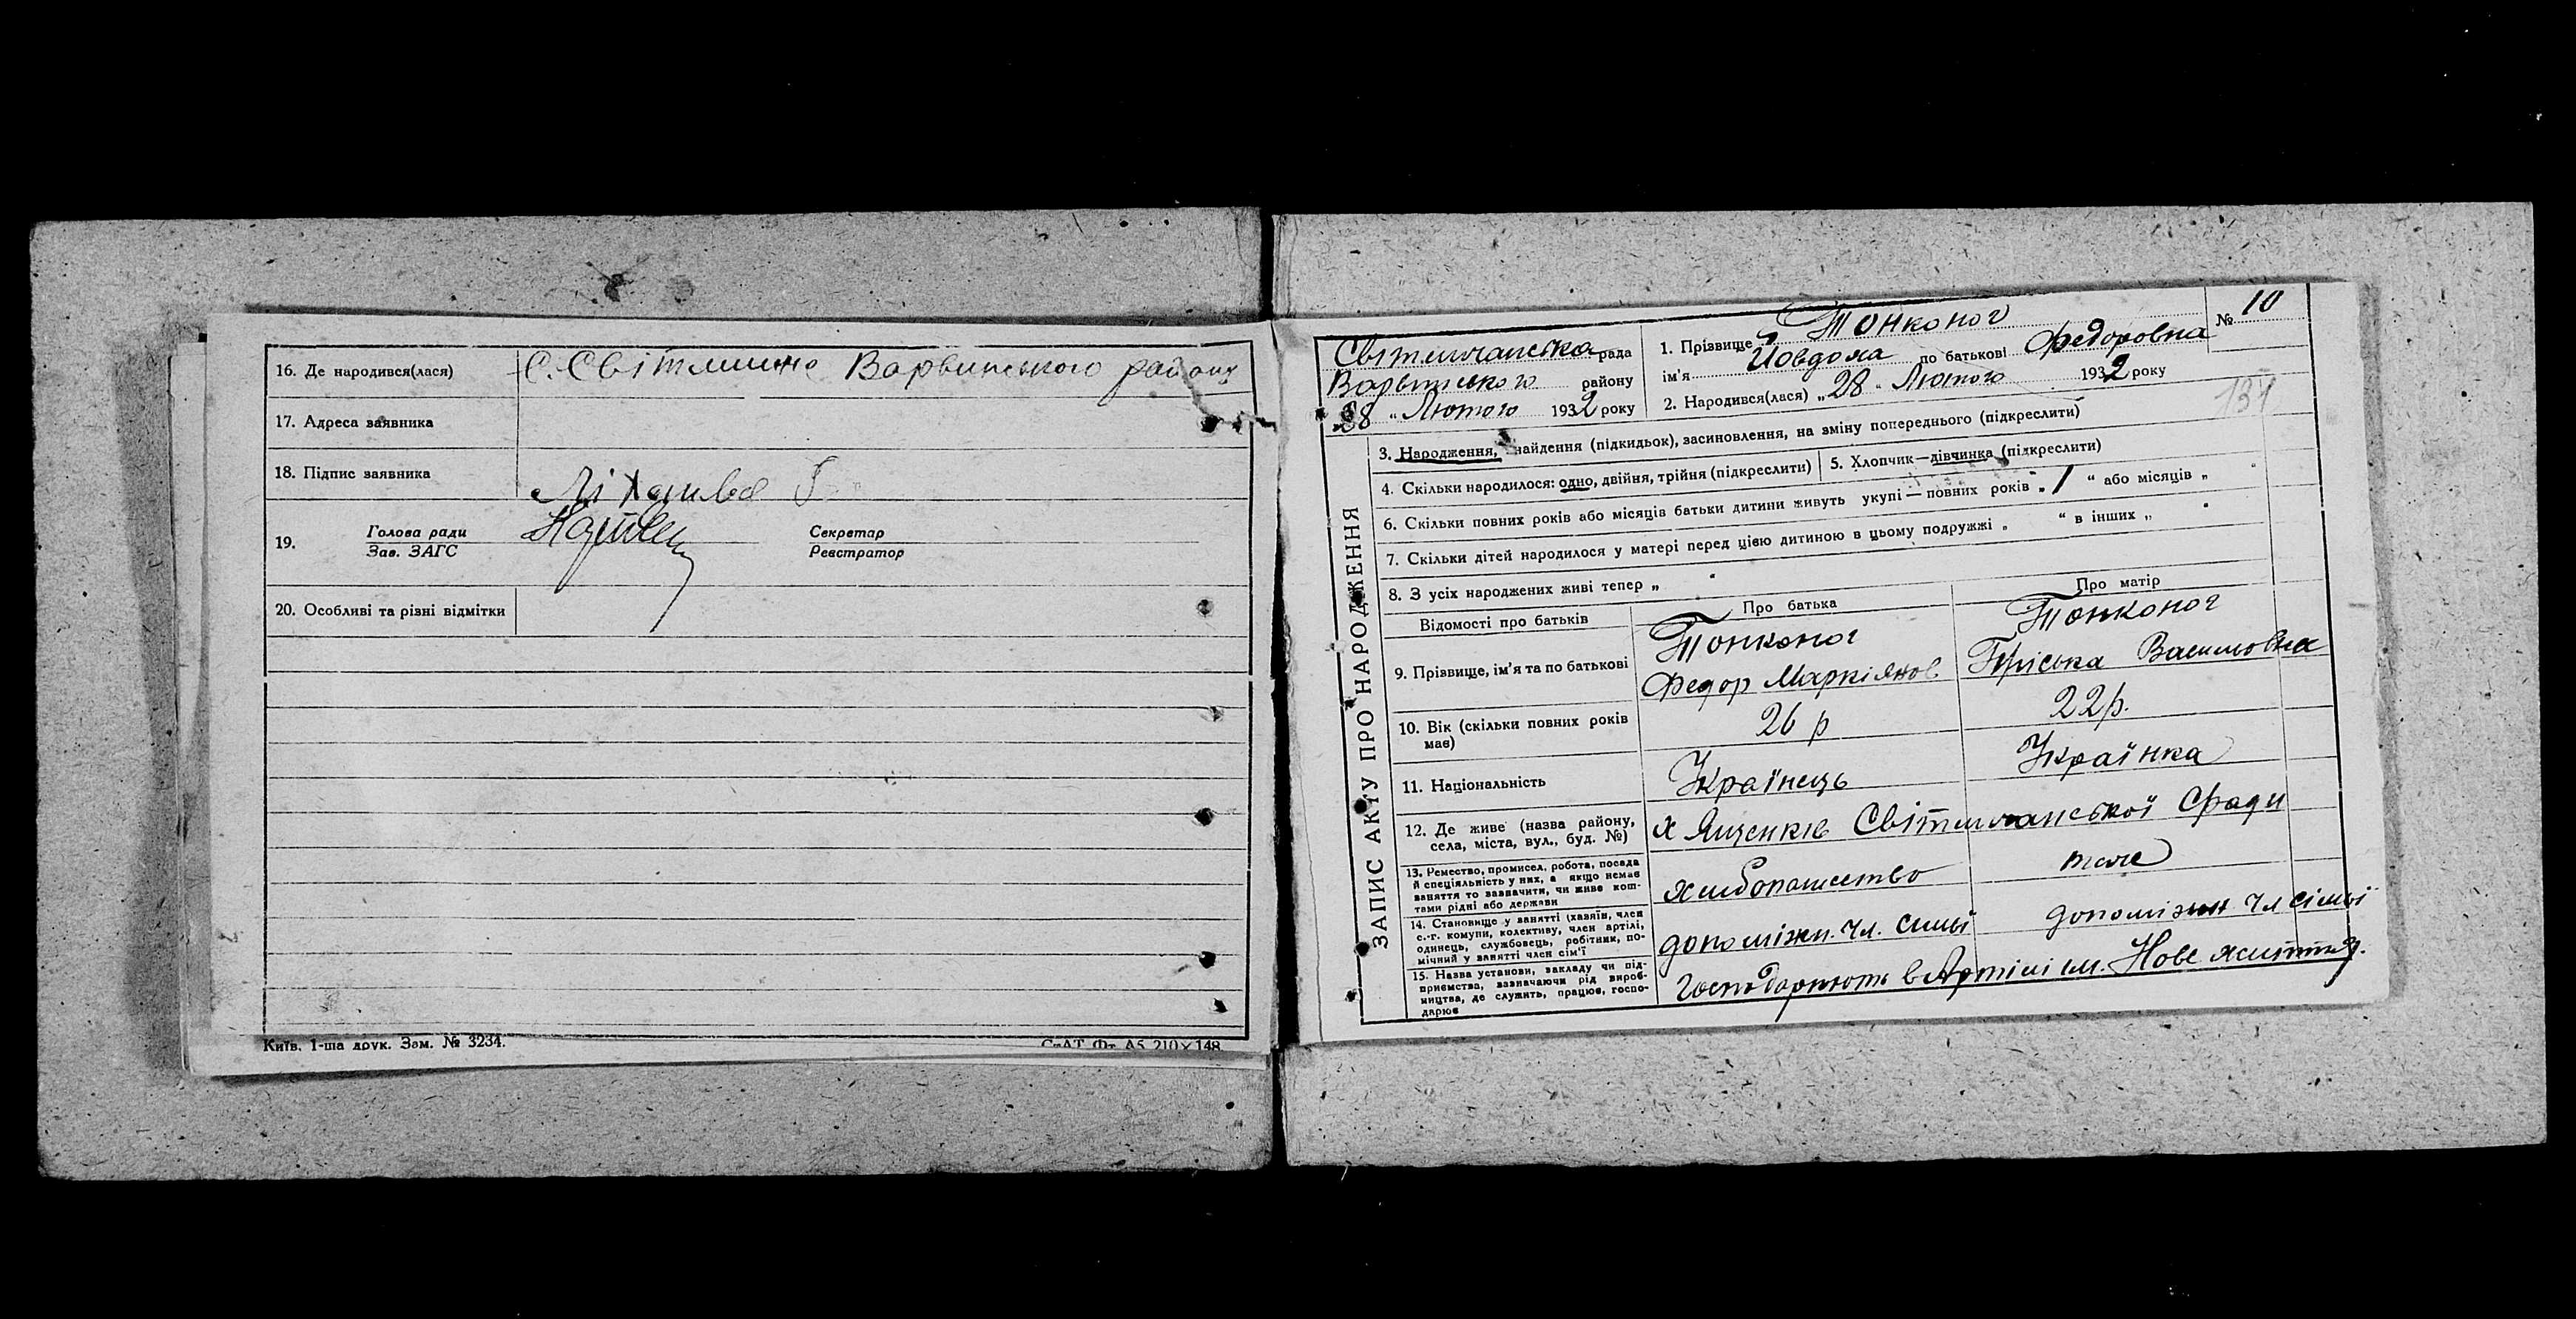 16. Де народився(лася)
С. Світлишно Варвинського району
17. Адреса заявника
18. Підпис заявника
19. Голова ради
Зав. ЗАГС
Секретар
Реєстратор
20. Особливі та різні відмітки
Київ. 1-ша друк. Зам. № 3234.
СпАТ Фт А5 210×148
ЗАПИС АКТУ ПРО НАРОДЖЕННЯ
Світличанська рада
Варвинського району
28 „ Лютого 1932 року
1. Прізвище Тонконог
ім’я Йовдоха по батькові Федоровна
№ 10
2. Народився(лася) „28 „ Лютого 1932 року
137
3. Народження, знайдення (підкидьок), засиновлення, на зміну попереднього (підкреслити)
4. Скільки народилося: одно, двійня, трійня (підкреслити)
5. Хлопчик—дівчинка (підкреслити)
6. Скільки повних років або місяців батьки дитини живуть укупі — повних років „ 1 “ або місяців „ “
7. Скільки дітей народилося у матері перед цією дитиною в цьому подружжі „ “ в інших „ “
8. З усіх народжених живі тепер „ “
Відомості про батьків
Про батька
Про матір
9. Прізвище, ім’я та по батькові
Тонконог
Федор Маркіянов
Тонконог
Пріська Василовна
10. Вік (скільки повних років
має)
26 р
22 р.
11. Національність
Українець
Українка
12. Де живе (назва району,
села, міста, вул., буд. №)
х Ященків Світличанської с/ради
13. Ремество, промисел, робота, посада
й спеціяльність у них, а якщо немає
заняття то зазначити, чи живе кош-
тами рідні або держави
хліборобство
теж
14. Становище у занятті (хазяїн, член
с.-г. комуни, колективу, член артілі,
одинець, службовець, робітник, по-
мічний у занятті член сім’ї
допоміжн. чл. сімьї
допоміжн чл сімьї
15. Назва установи, закладу чи під-
приємства, зазначаючи рід вироб-
ництва, де служить, працює, госпо-
дарює
господарюють в Артілі ім. Нове життя.